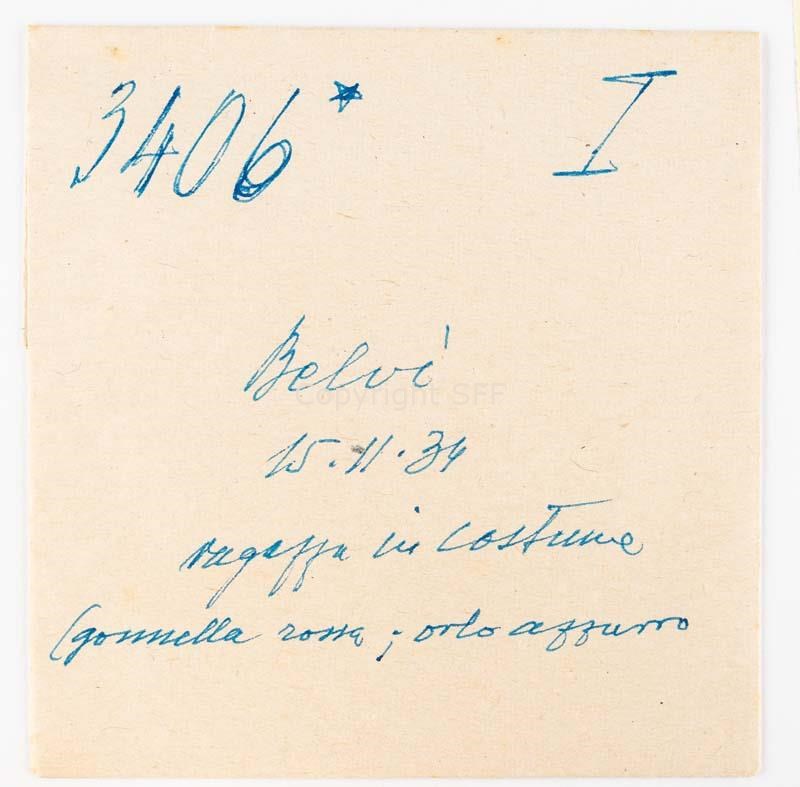 3406* I
Belvì
Copyright SFF
15.11.34
ragazza in costume
(gonnella rossa; orlo azzurro